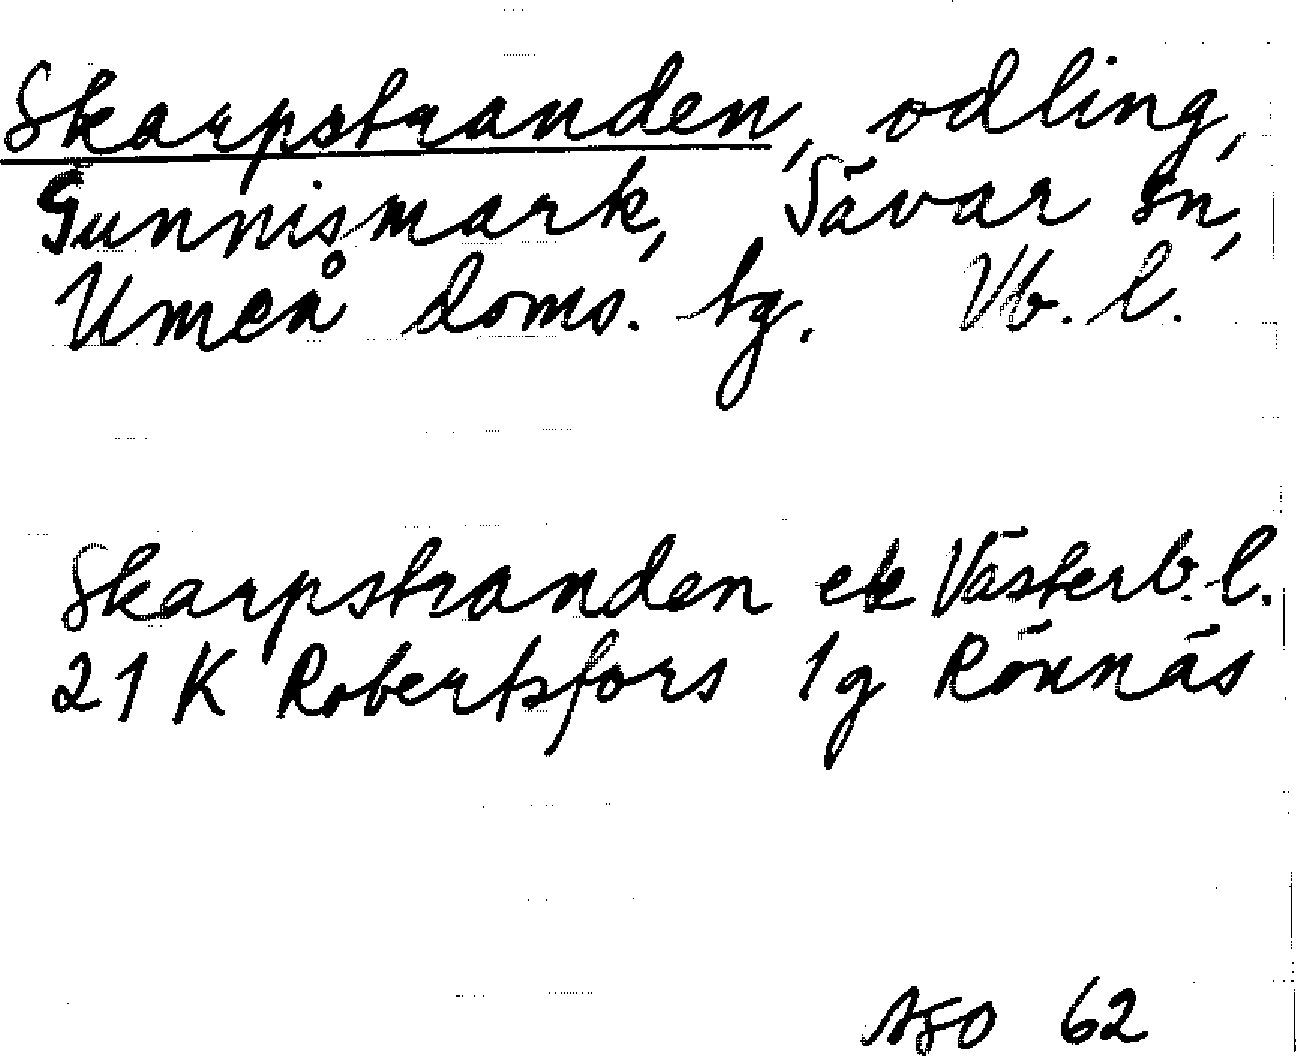 Skarpstranden, odling,
Gunnismark, Sävar sn,
Umeå doms. tg. Vb. l.
Skarpstranden ek Västerb. l.
21 K Robertsfors 1g Rönnäs
62